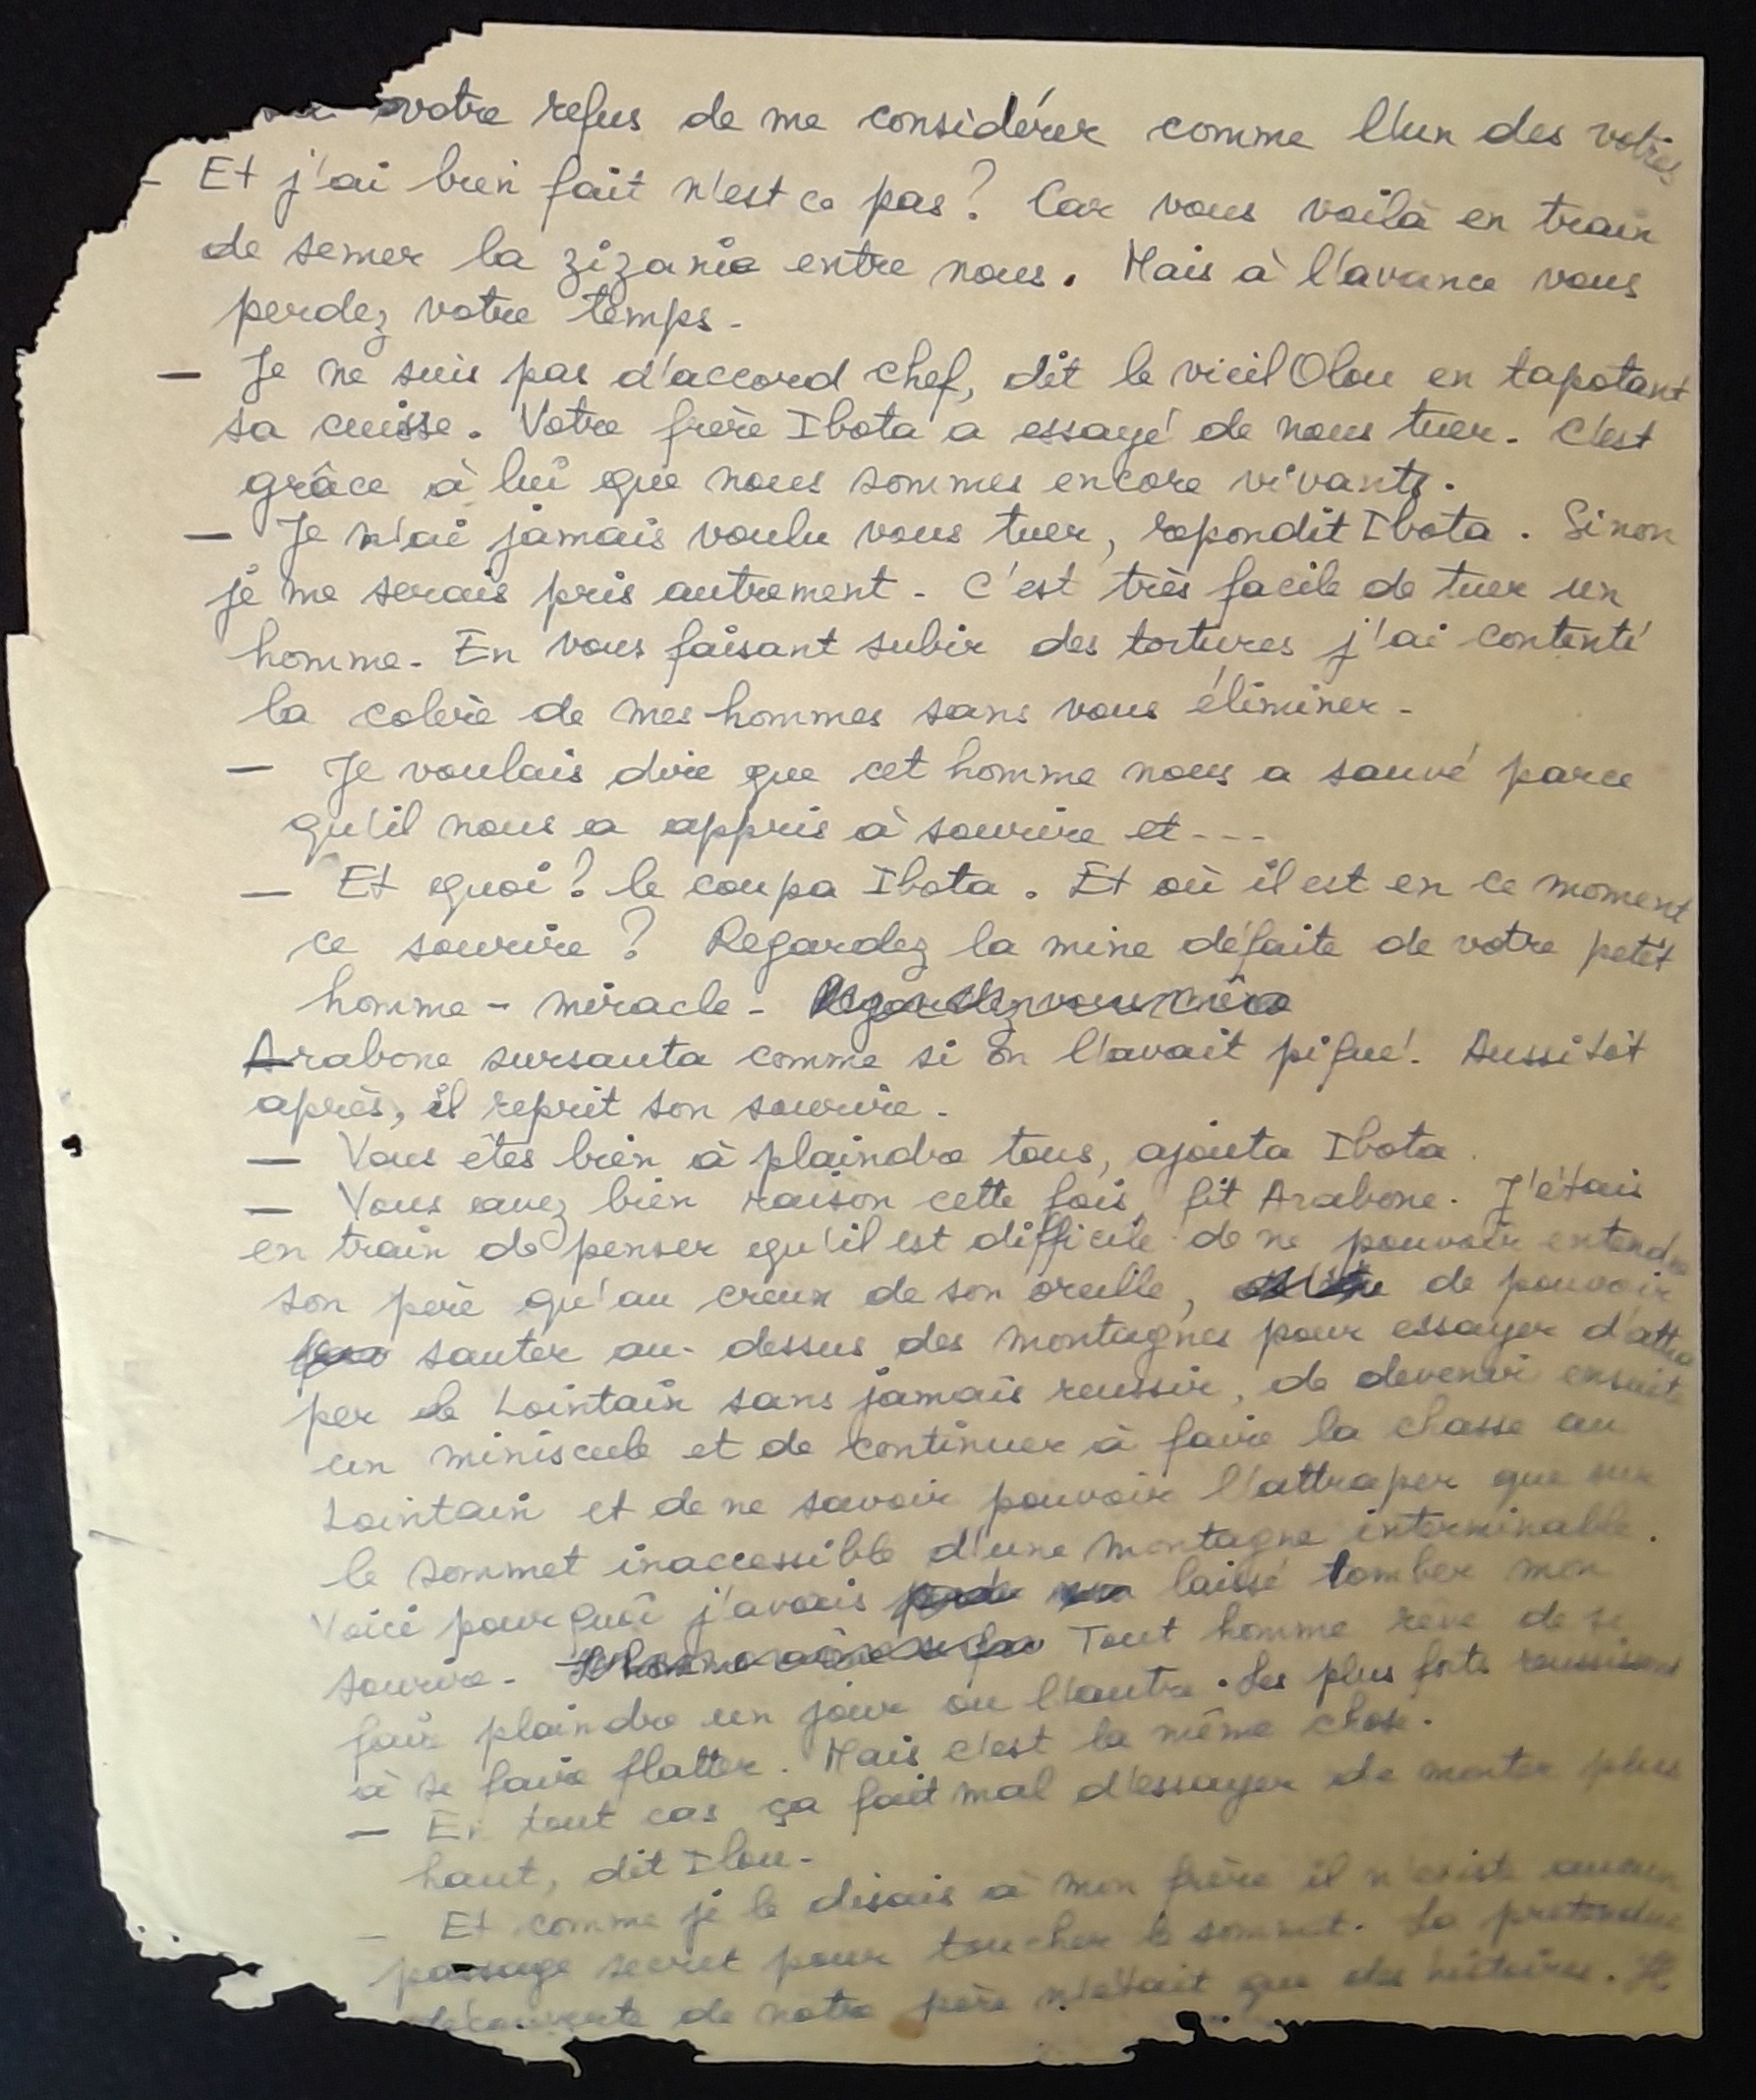 votre refus de me considérer comme l'un des votres
- Et j'ai bien fait n'est ce pas ? Car vous voilà en train
de semer la zizanie entre nous. Mais à l'avance vous
perdez votre temps.
— Je ne suis pas d'accord chef, dit le vieil Olou en tapotant
sa cuisse. Votre frère Ibota a essayé de nous tuer. C'est
grâce à lui que nous sommes encore vivants.
— Je n'ai jamais voulu vous tuer, répondit Ibota. Sinon
je me serais pris autrement. C'est très facile de tuer un
homme. En vous faisant subir des tortures j'ai contenté
la colère de mes hommes sans vous éliminer.
— Je voulais dire que cet homme nous a sauvé parce
qu'il nous a appris à sourire et---
— Et quoi ? le coupa Ibota. Et où il est en ce moment
ce sourire ? Regardez la mine défaite de votre petit
homme - miracle.
Arabone sursauta comme si on l'avait piqué. Aussitôt
après, il reprit son sourire.
— Vous êtes bien à plaindre tous, ajouta Ibota.
— Vous avez bien raison cette fois, fit Arabone. J'étais
en train de penser qu'il est difficile de ne pouvoir entendre
son père qu'au creux de son oreille, de pouvoir
sauter au-dessus des montagnes pour essayer d'attra
per le Lointain sans jamais reussir, de devenir ensuite
un miniscule et de continuer à faire la chasse au
Lointain et de ne savoir pouvoir l'attraper que sur
le sommet inaccessible d'une montagne interminable.
Voici pourquoi j'avais laissé tomber mon
sourire. Tout homme rêve de se
faire plaindre un jour ou l'autre. Les plus forts reussissent
à se faire flatter. Mais c'est la même chose.
— En tout cas ça fait mal d'essayer de monter plus
haut, dit Ilou.
— Et comme je le disais à mon frère il n'existe aucun
passage secret pour toucher le sommet. La pretendue
découverte de notre père n'était que des histoires. Il